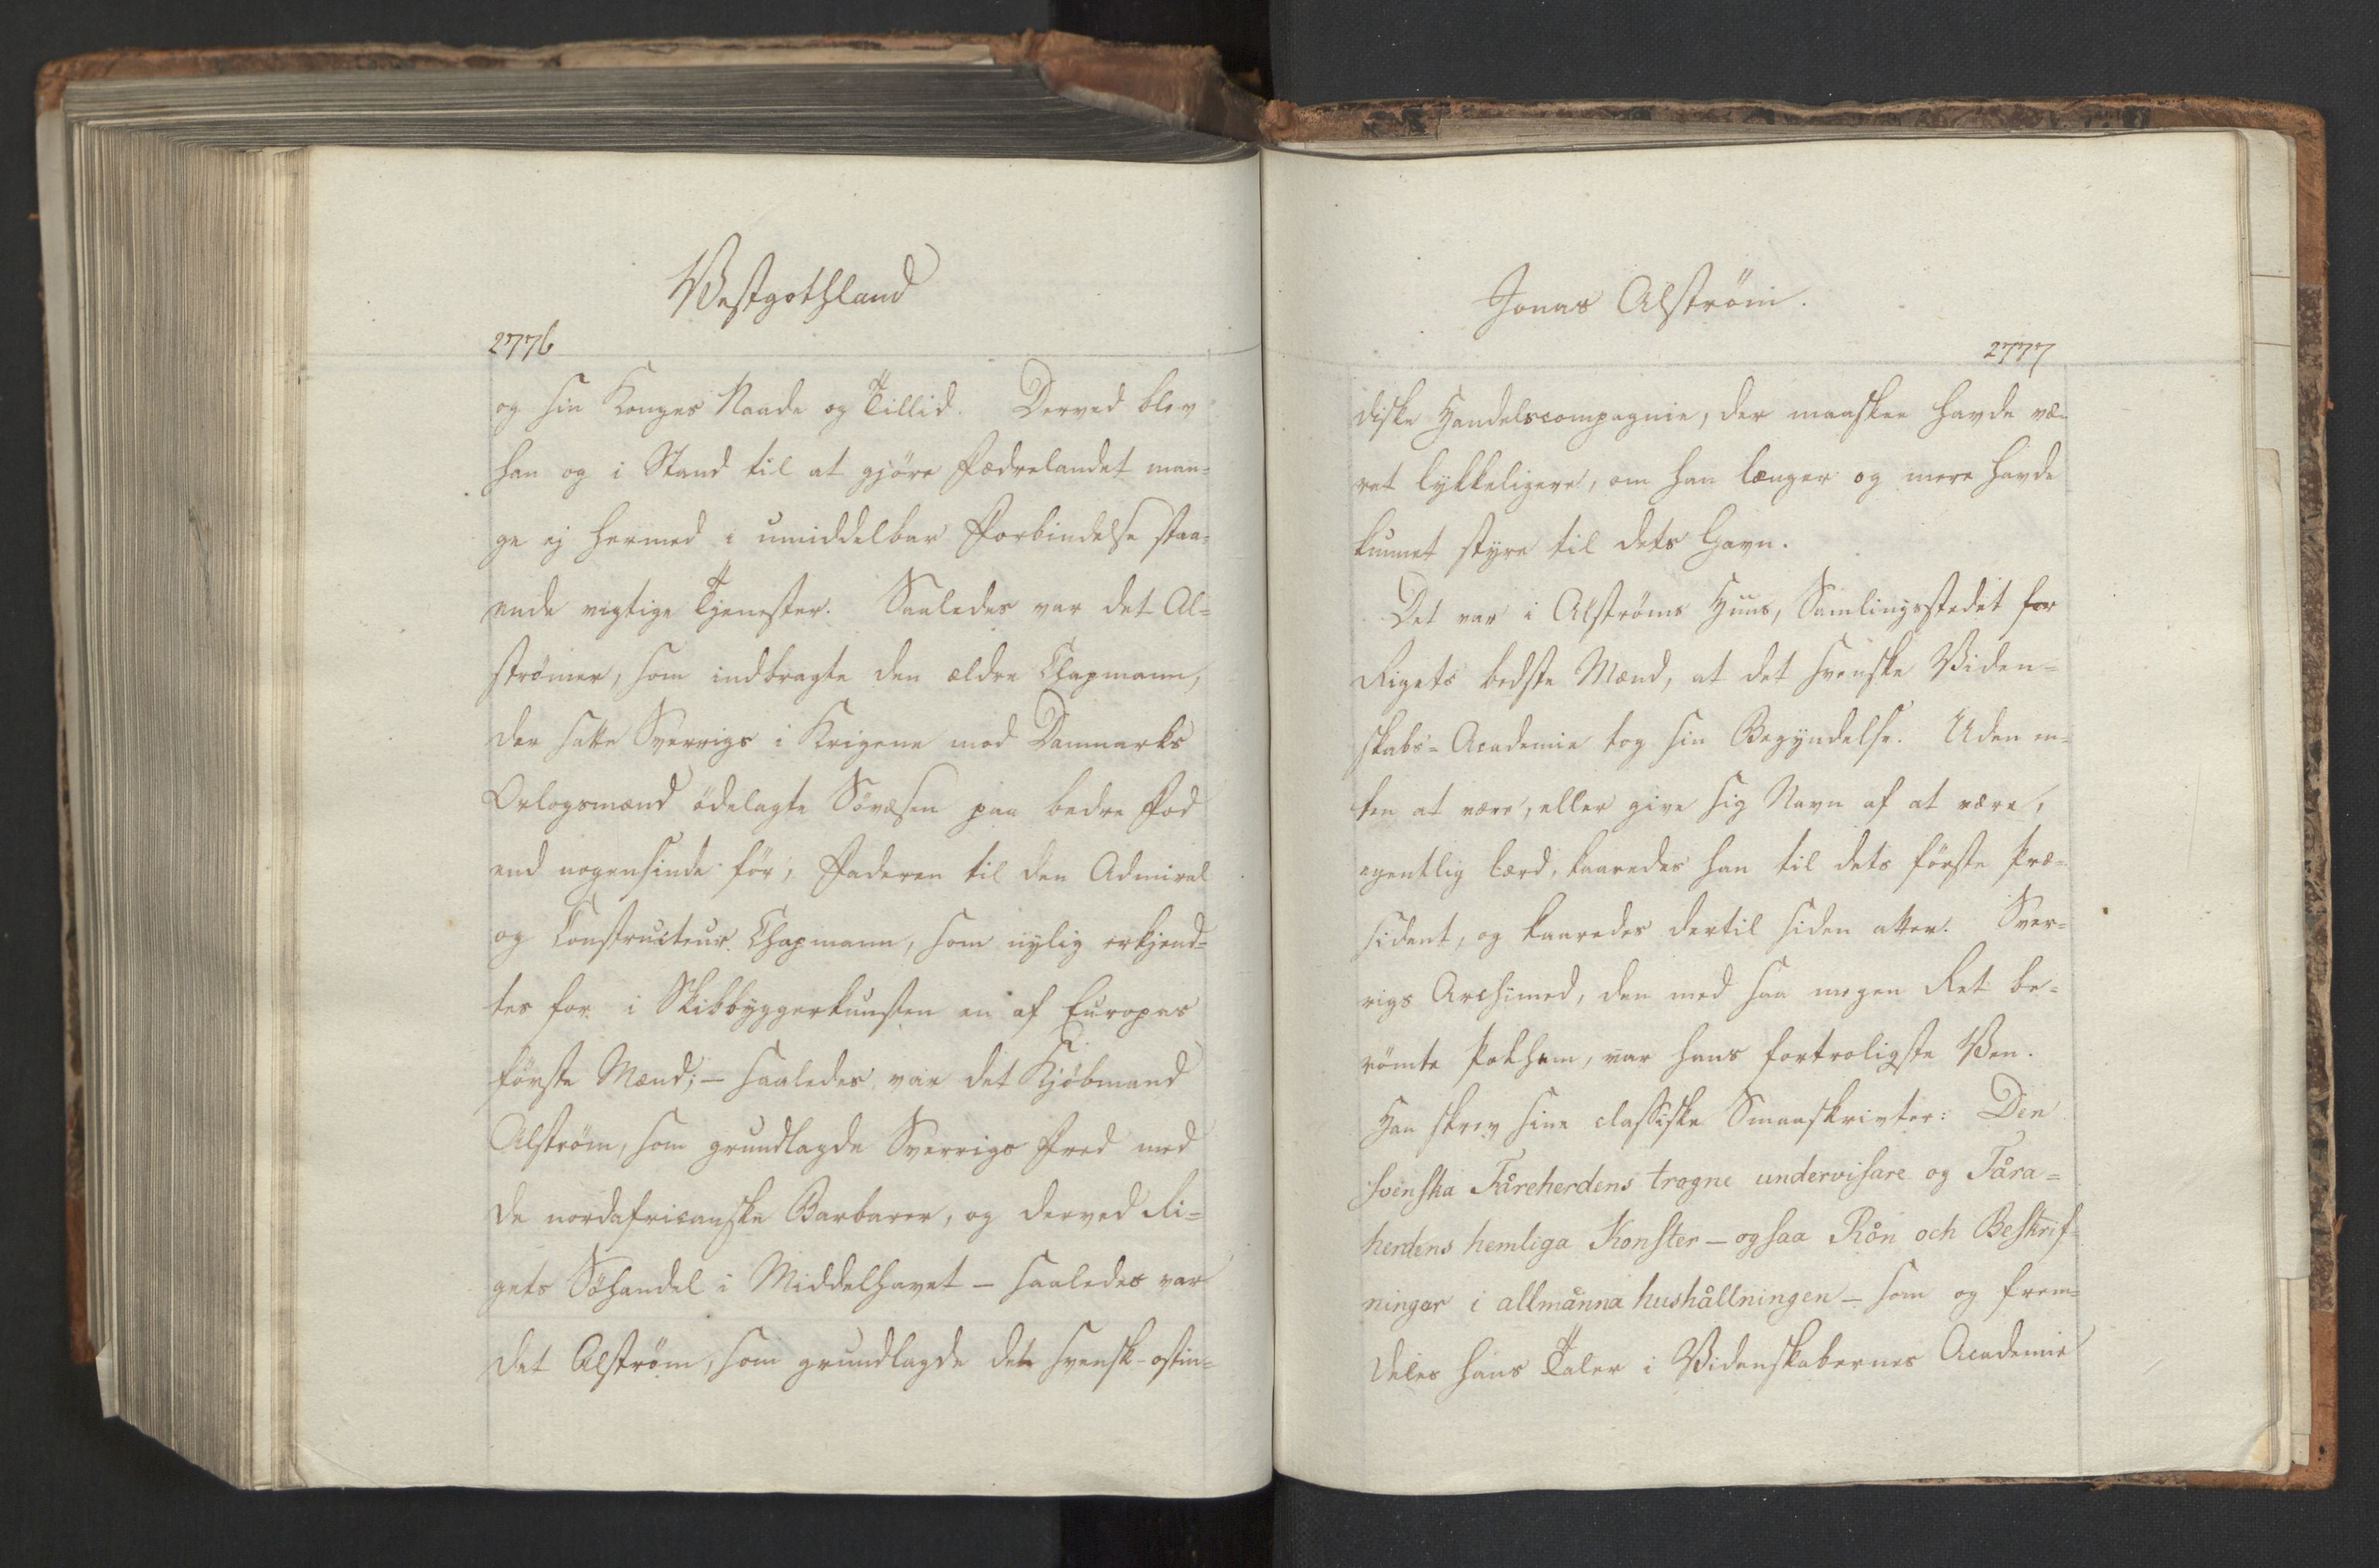 Westgothland
2776
og sin Konges Naade og Tillid. Derved blev
han og i Stand til at gjöre Fædrelandet man-
ge ej hermed i umiddelbar Forbindelse staa-
ende vigtige Tjenester. Saaledes var det Al-
strömer, som indbragte den ældre Chapmann,
der satte Sverrigs i Krigene mod Danmarks
Orlogsmænd ödelagte Sövæsen paa bedre Fod
end nogensinde för, Faderen til den Admiral
og Constructeur Chapmann, som nylig erkjend-
tes for i Skibbyggerkunsten en af Europas
förste Mænd; – saaledes var det Kjöbmand
Alström, som grundlagde Sverrigs Fred med
de nordafricanske Barbarer, og derved Ri-
gets Söhandel i Middelhavet – saaledes var
det Alström, som grundlagde det svensk-ostin-
Jonas Alström.
2777
diske Handelscompagnie, der maaskee havde væ-
ret lykkeligere, om han længer og mere havde
kunnet styre til dets Gavn.
Det var i Alströms Huus, Samlingsstedet for
Rigets bedste Mænd, at det svenske Viden-
skabs-Academie tog sin Begyndelse. Uden en-
ten at være, eller give sig Navn af at være,
egentlig lærd, kaaredes han til dets förste Præ-
sident, og kaaredes dertil siden atter. Sver-
rigs Archimed, den med saa megen Ret be-
römte Polhem, var hans fortroligste Ven.
Han skrev sine classiske Smaaskrivter: Den
svenska Fåreherdens trogne undervisare og Fåra-
herdens hemliga Konster – ogsaa Rön och Beskrif-
ningar i allmånna hushållningen – som og frem-
deles hans Taler i Videnskabernes Academie